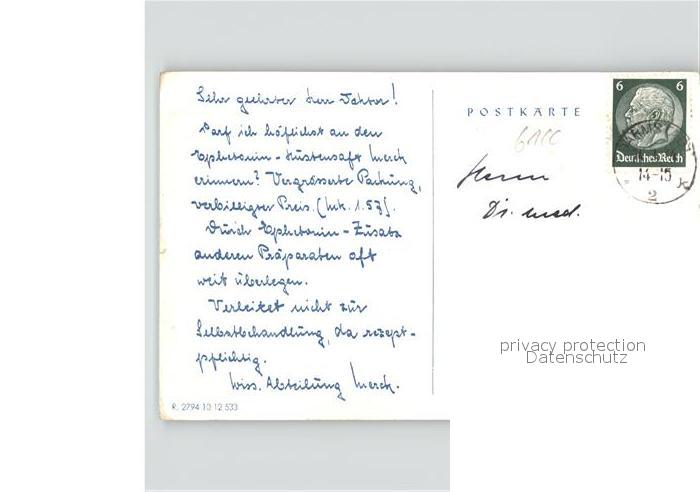 Sehr geehrter Herr Doktor!
Darf ich höflichst an den
Ephetonin-Hustensaft Merck
erinnern? Vergrösserte Packung,
verbilligter Preis. (Mk. 1.57).
Durch Ephetonin-Zusatz
anderen Präparaten oft
weit überlegen.
Verleitet nicht zur
Selbstbehandlung, da rezept-
pflichtig.
Wiss. Abteilung Merck.
R. 2794 10 12 533
POSTKARTE
6 6
Deutsches Reich
14-15
2
Herrn
Dr. med.
privacy protection
Datenschutz